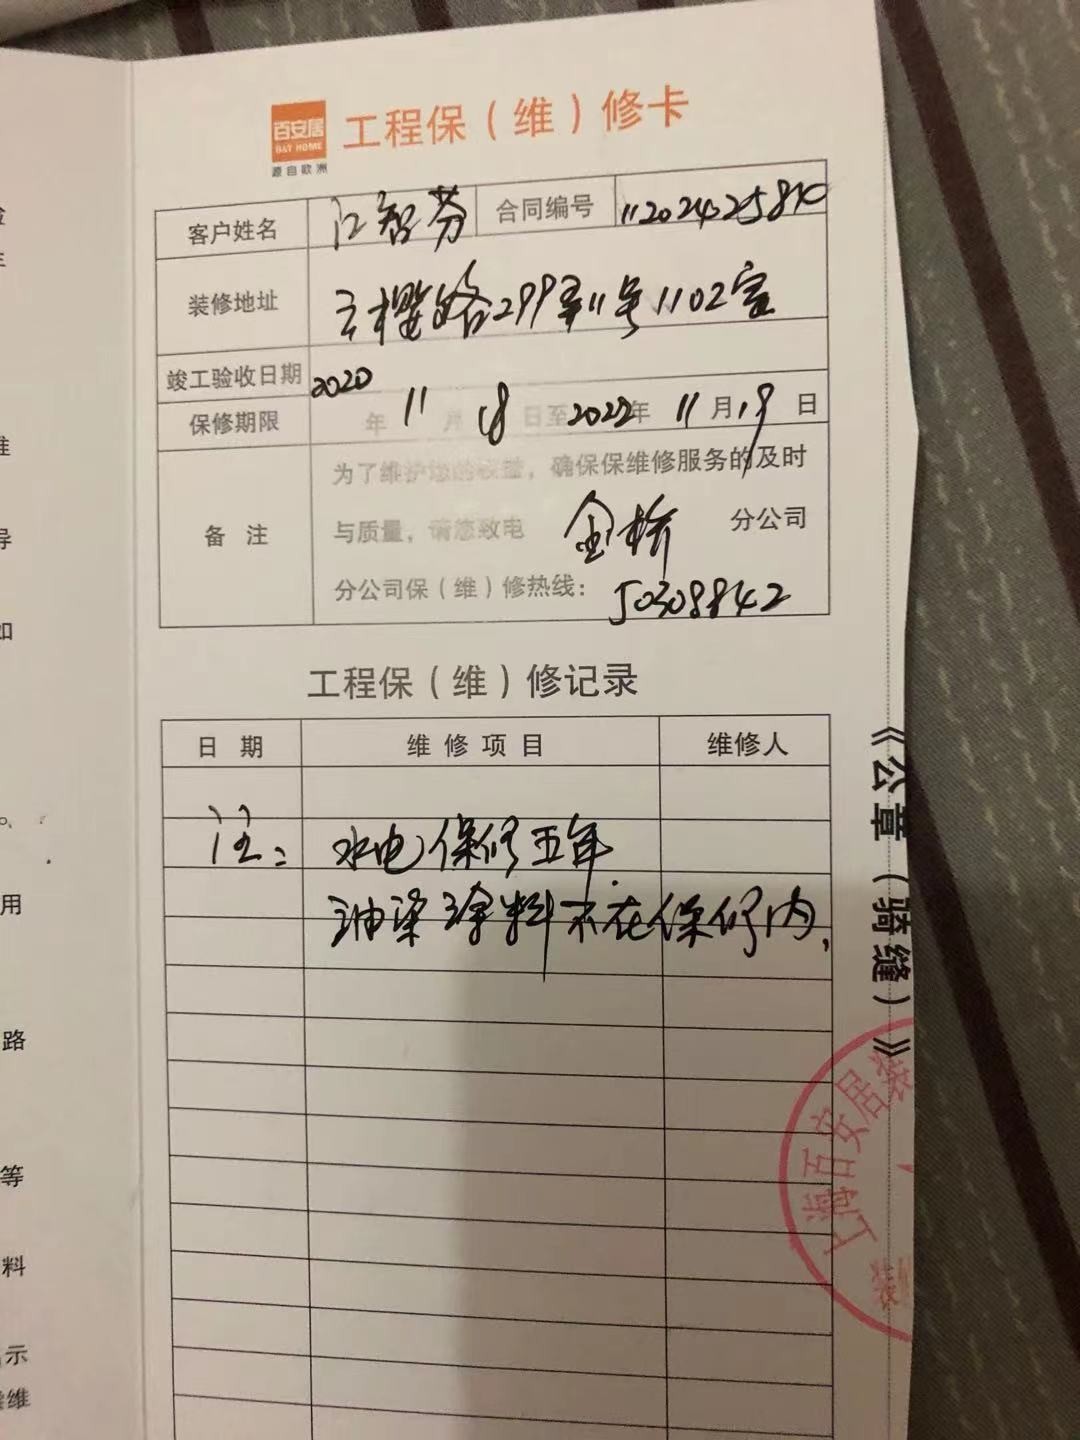 百安居
B&T HOME
源自欧洲
工程保（维）修卡
客户姓名 江智芬 合同编号
装修地址 云樱路299弄11号1102室
竣工验收日期
保修期限 2020年11月18日至2022年11月19日
备 注 为了维护您的权益，确保保维修服务的及时
与质量，请您致电 金桥 分公司
分公司保（维）修热线：50308842
工程保（维）修记录
日 期 维 修 项 目 维修人
注：水电保修五年
油漆涂料不在保修内
《公章（骑缝）》
上海百安居装
导
如
用
路
等
料
示
维